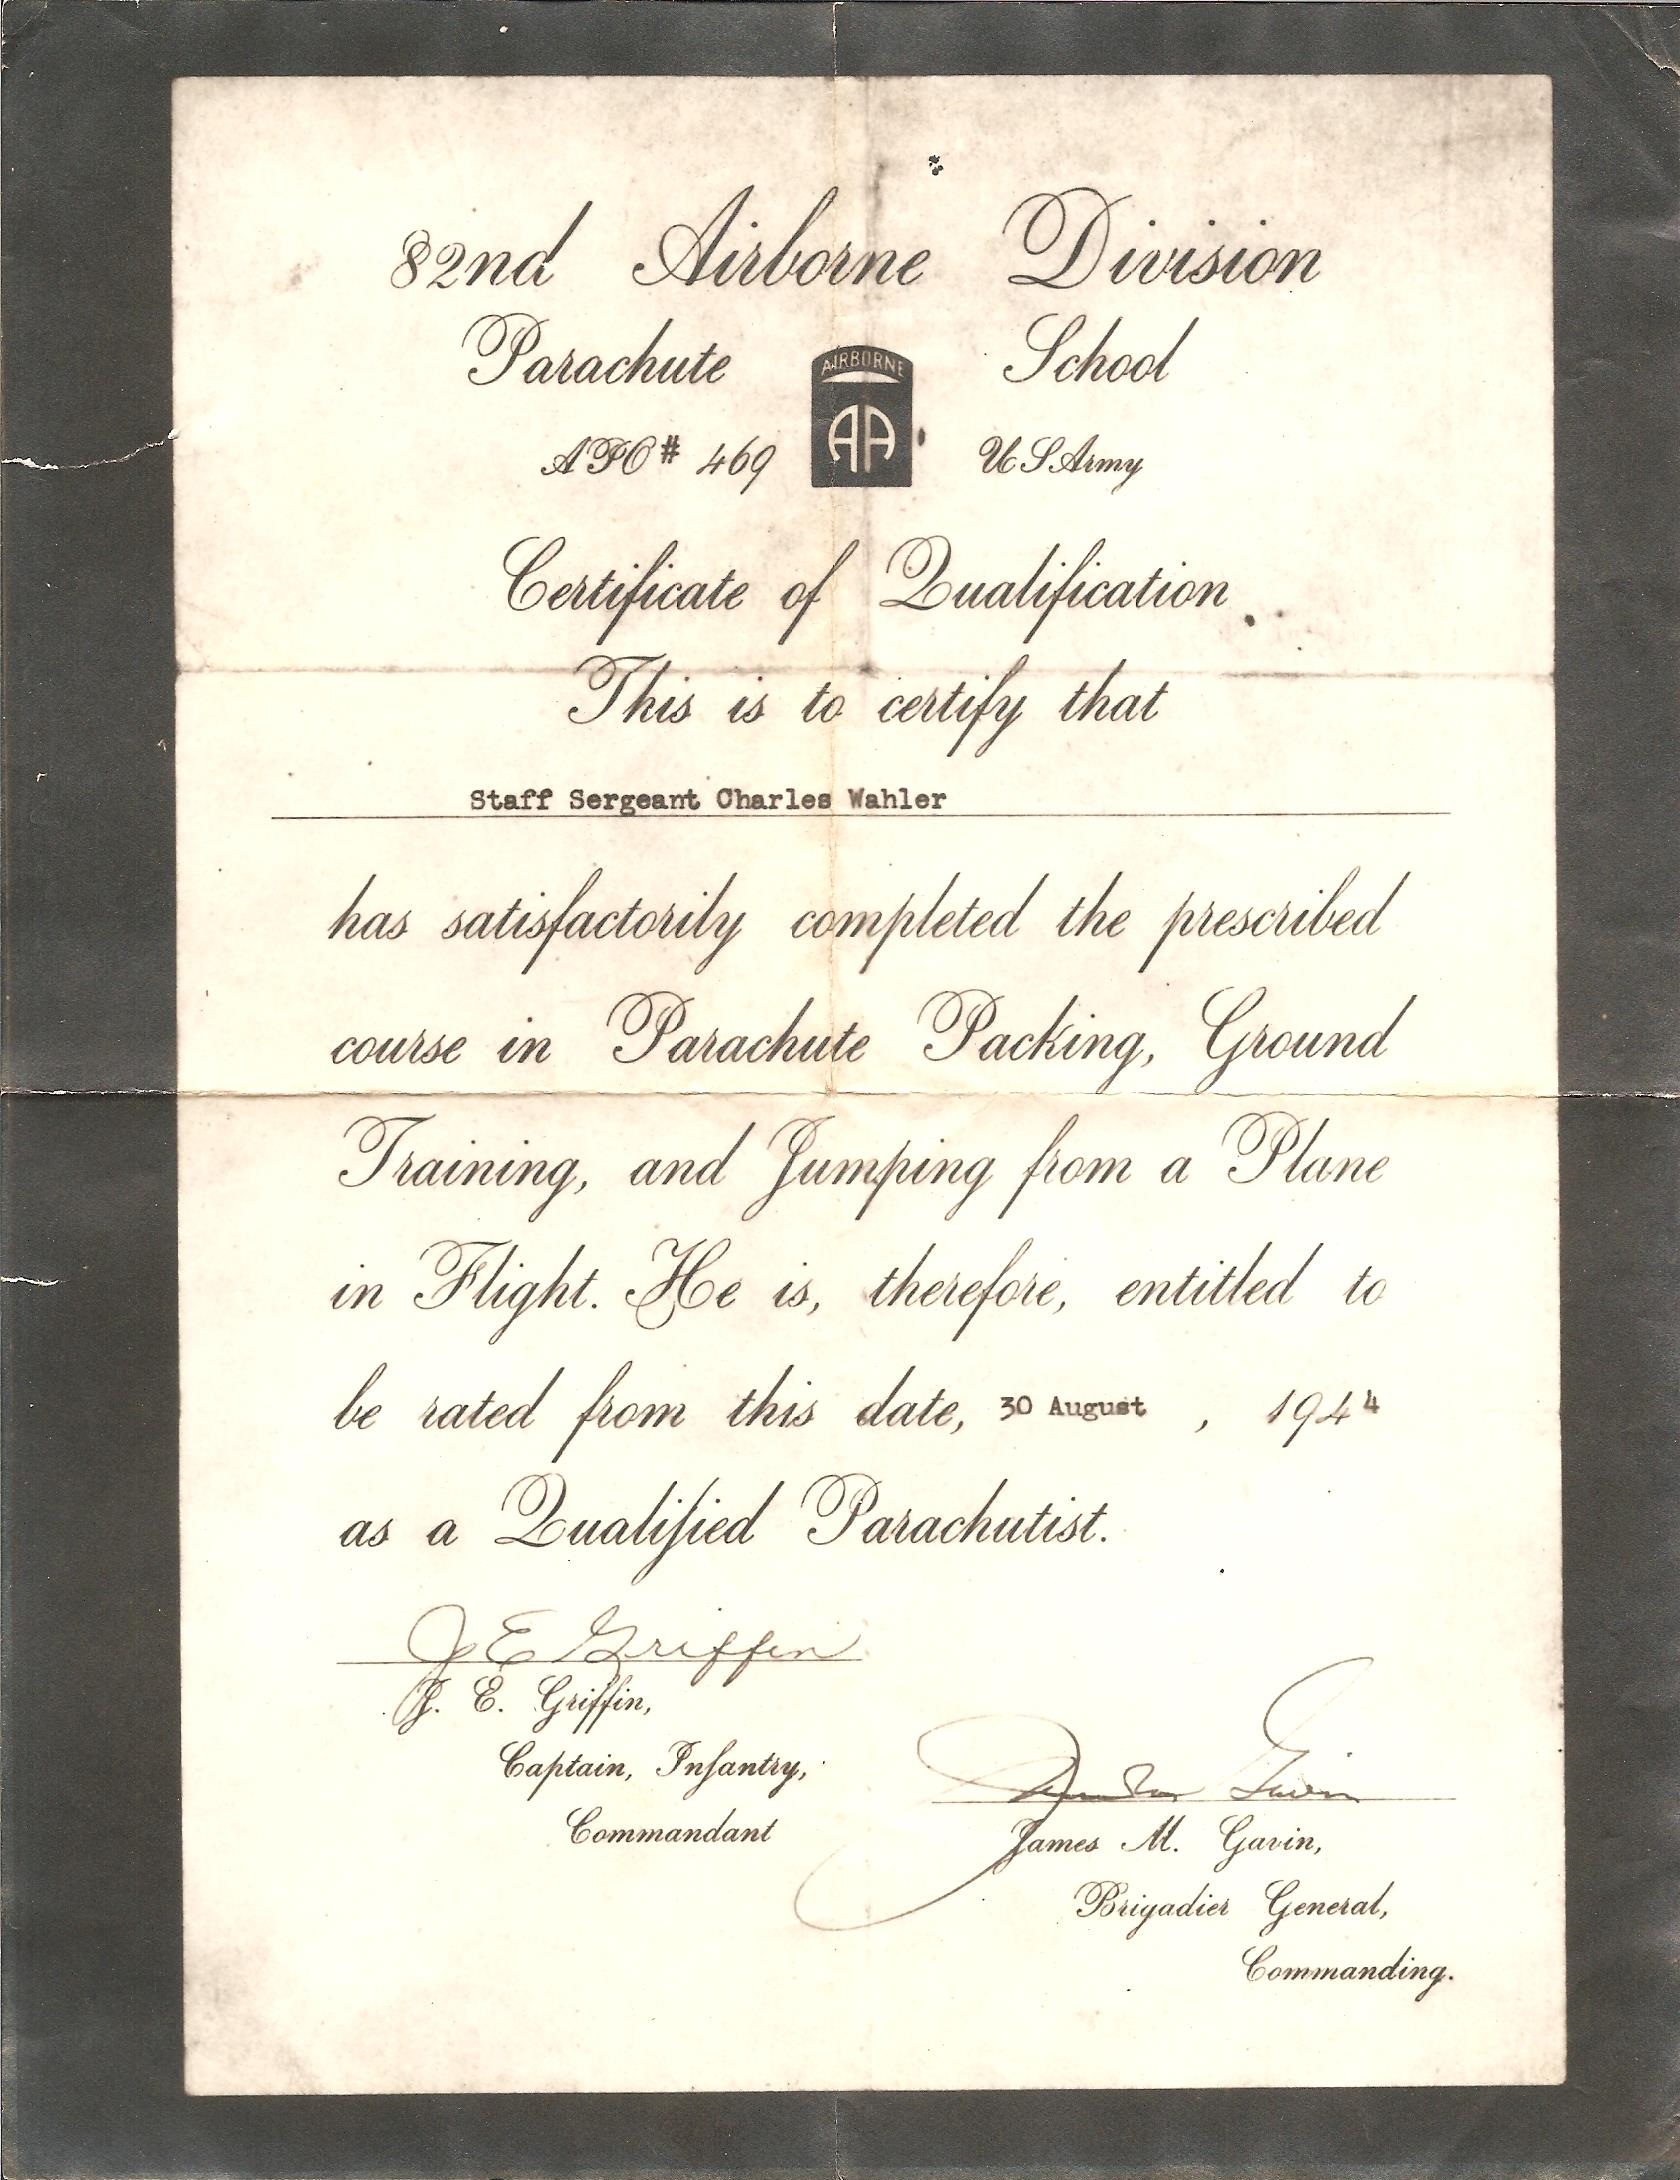 82nd Airborne Division
Parachute School
AIRBORNE
AA
APO # 469 US Army
Certificate of Qualification
This is to certify that
Staff Sergeant Charles Wahler
has satisfactorily completed the prescribed
course in Parachute Packing, Ground
Training, and Jumping from a Plane
in Flight. He is, therefore, entitled to
be rated from this date, 30 August , 1944
as a Qualified Parachutist.
J E Griffin
J. E. Griffin,
Captain, Infantry,
Commandant
James M Gavin
James M. Gavin,
Brigadier General,
Commanding.